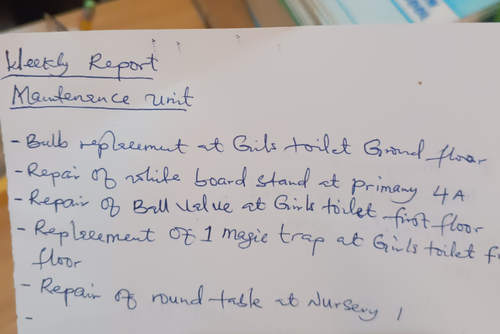 Weekly Report
Maintenance unit
- Bulb replacement at Girls toilet Ground floor
- Repair of white board stand at primary 4A
- Repair of Ball Value at Girls toilet first floor
- Replacement of 1 magic trap at Girls toilet
floor
- Repair of round table at Nursery 1
-